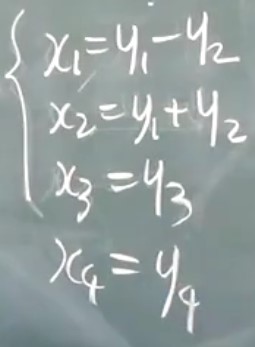 x₁=y₁-y₂
x₂=y₁+y₂
x₃=y₃
x₄=y₄